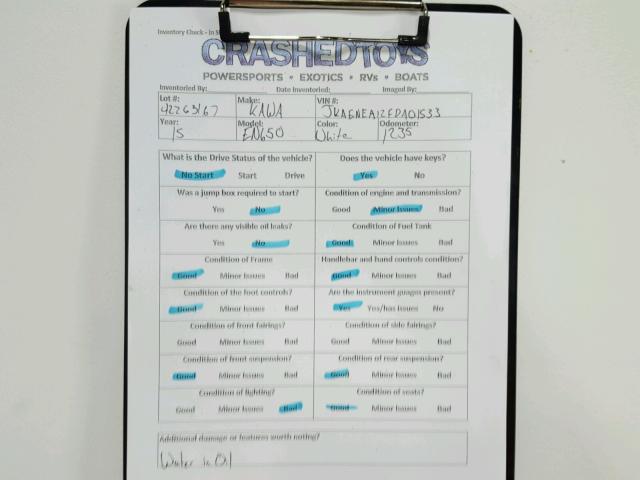 Inventory Check - In S
CRASHEDTOYS
POWERSPORTS • EXOTICS • RVs • BOATS
Inventoried By: Date Inventoried: Imaged By:
Lot #: Make: VIN#:
42263167 KAWA JKAENEA12FDA01533
Year: Model: Color: Odometer:
15 EN650 White 1235
What is the Drive Status of the vehicle? Does the vehicle have keys?
No Start Start Drive Yes No
Was a jump box required to start? Condition of engine and transmission?
Yes No Good Minor Issues Bad
Are there any visible oil leaks? Condition of Fuel Tank
Yes No Good Minor Issues Bad
Condition of Frame Handlebar and hand controls condition?
Good Minor Issues Bad Good Minor Issues Bad
Condition of the foot controls? Are the instrument guages present?
Good Minor Issues Bad Yes Yes/has Issues No
Condition of front fairings? Condition of side fairings?
Good Minor Issues Bad Good Minor Issues Bad
Condition of front suspension? Condition of rear suspension?
Good Minor Issues Bad Good Minor Issues Bad
Condition of lighting? Condition of seats?
Good Minor Issues Bad Good Minor Issues Bad
Additional damage or features worth noting?
Water in Oil